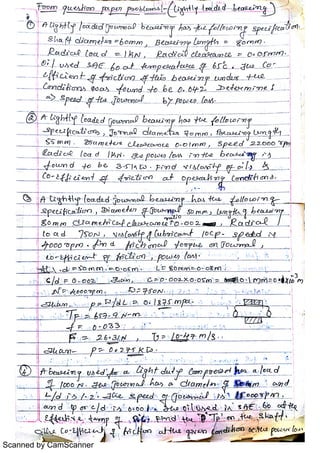 From question paper problems:- (Lightly loaded bearing)
① A lightly loaded journal bearing has the following specification
Shaft diameter = 60mm, Bearing length = 80mm.
Radial load = 1KN, Radial clearance = 0.05mm.
Oil used SAE 60 at temperature of 65°C. The Co-
efficient of friction of this bearing under the
conditions was found to be 0.042. Determine :
=> Speed of the journal b) power loss.
② A lightly loaded journal bearing has the following
specifications, Journal diameter 70mm, Bearing length
55mm. Diameter clearance 0.01mm, Speed 22000 rpm
Radial load 1KN. The power loss in the bearing is
found to be 3.5 KW. Find viscosity of oil &
Co-efficient of friction at operating conditions.
③ A lightly loaded bearing has the following
specification, Diameter of journal 50mm, length of bearing
80mm, diametrical clearance 0.002, Radial
load 750N, viscosity of lubricant 10CP. Speed is
4000rpm. find frictional torque on journal,
co-efficient of friction, power loss.
d=50mm=0.05m. L=80mm=0.08m.
c/d = 0.002 c=0.002x0.05m = 0.1mm
N=4000rpm. D=750N.
p=D/Ld = 0.1875 mpa.
f = 0.033.
p= 0.275KW.
④ A bearing used for a light duty compressor has a load
of 1000 N. The journal has a diameter of and
L/d is 1.2. The speed of journal is rpm,
and c/d is The oil used is SAE 60 at the
effective temp of Find the on the shaft.
the co-efficient of friction at the given condition & the power loss
Scanned by CamScanner